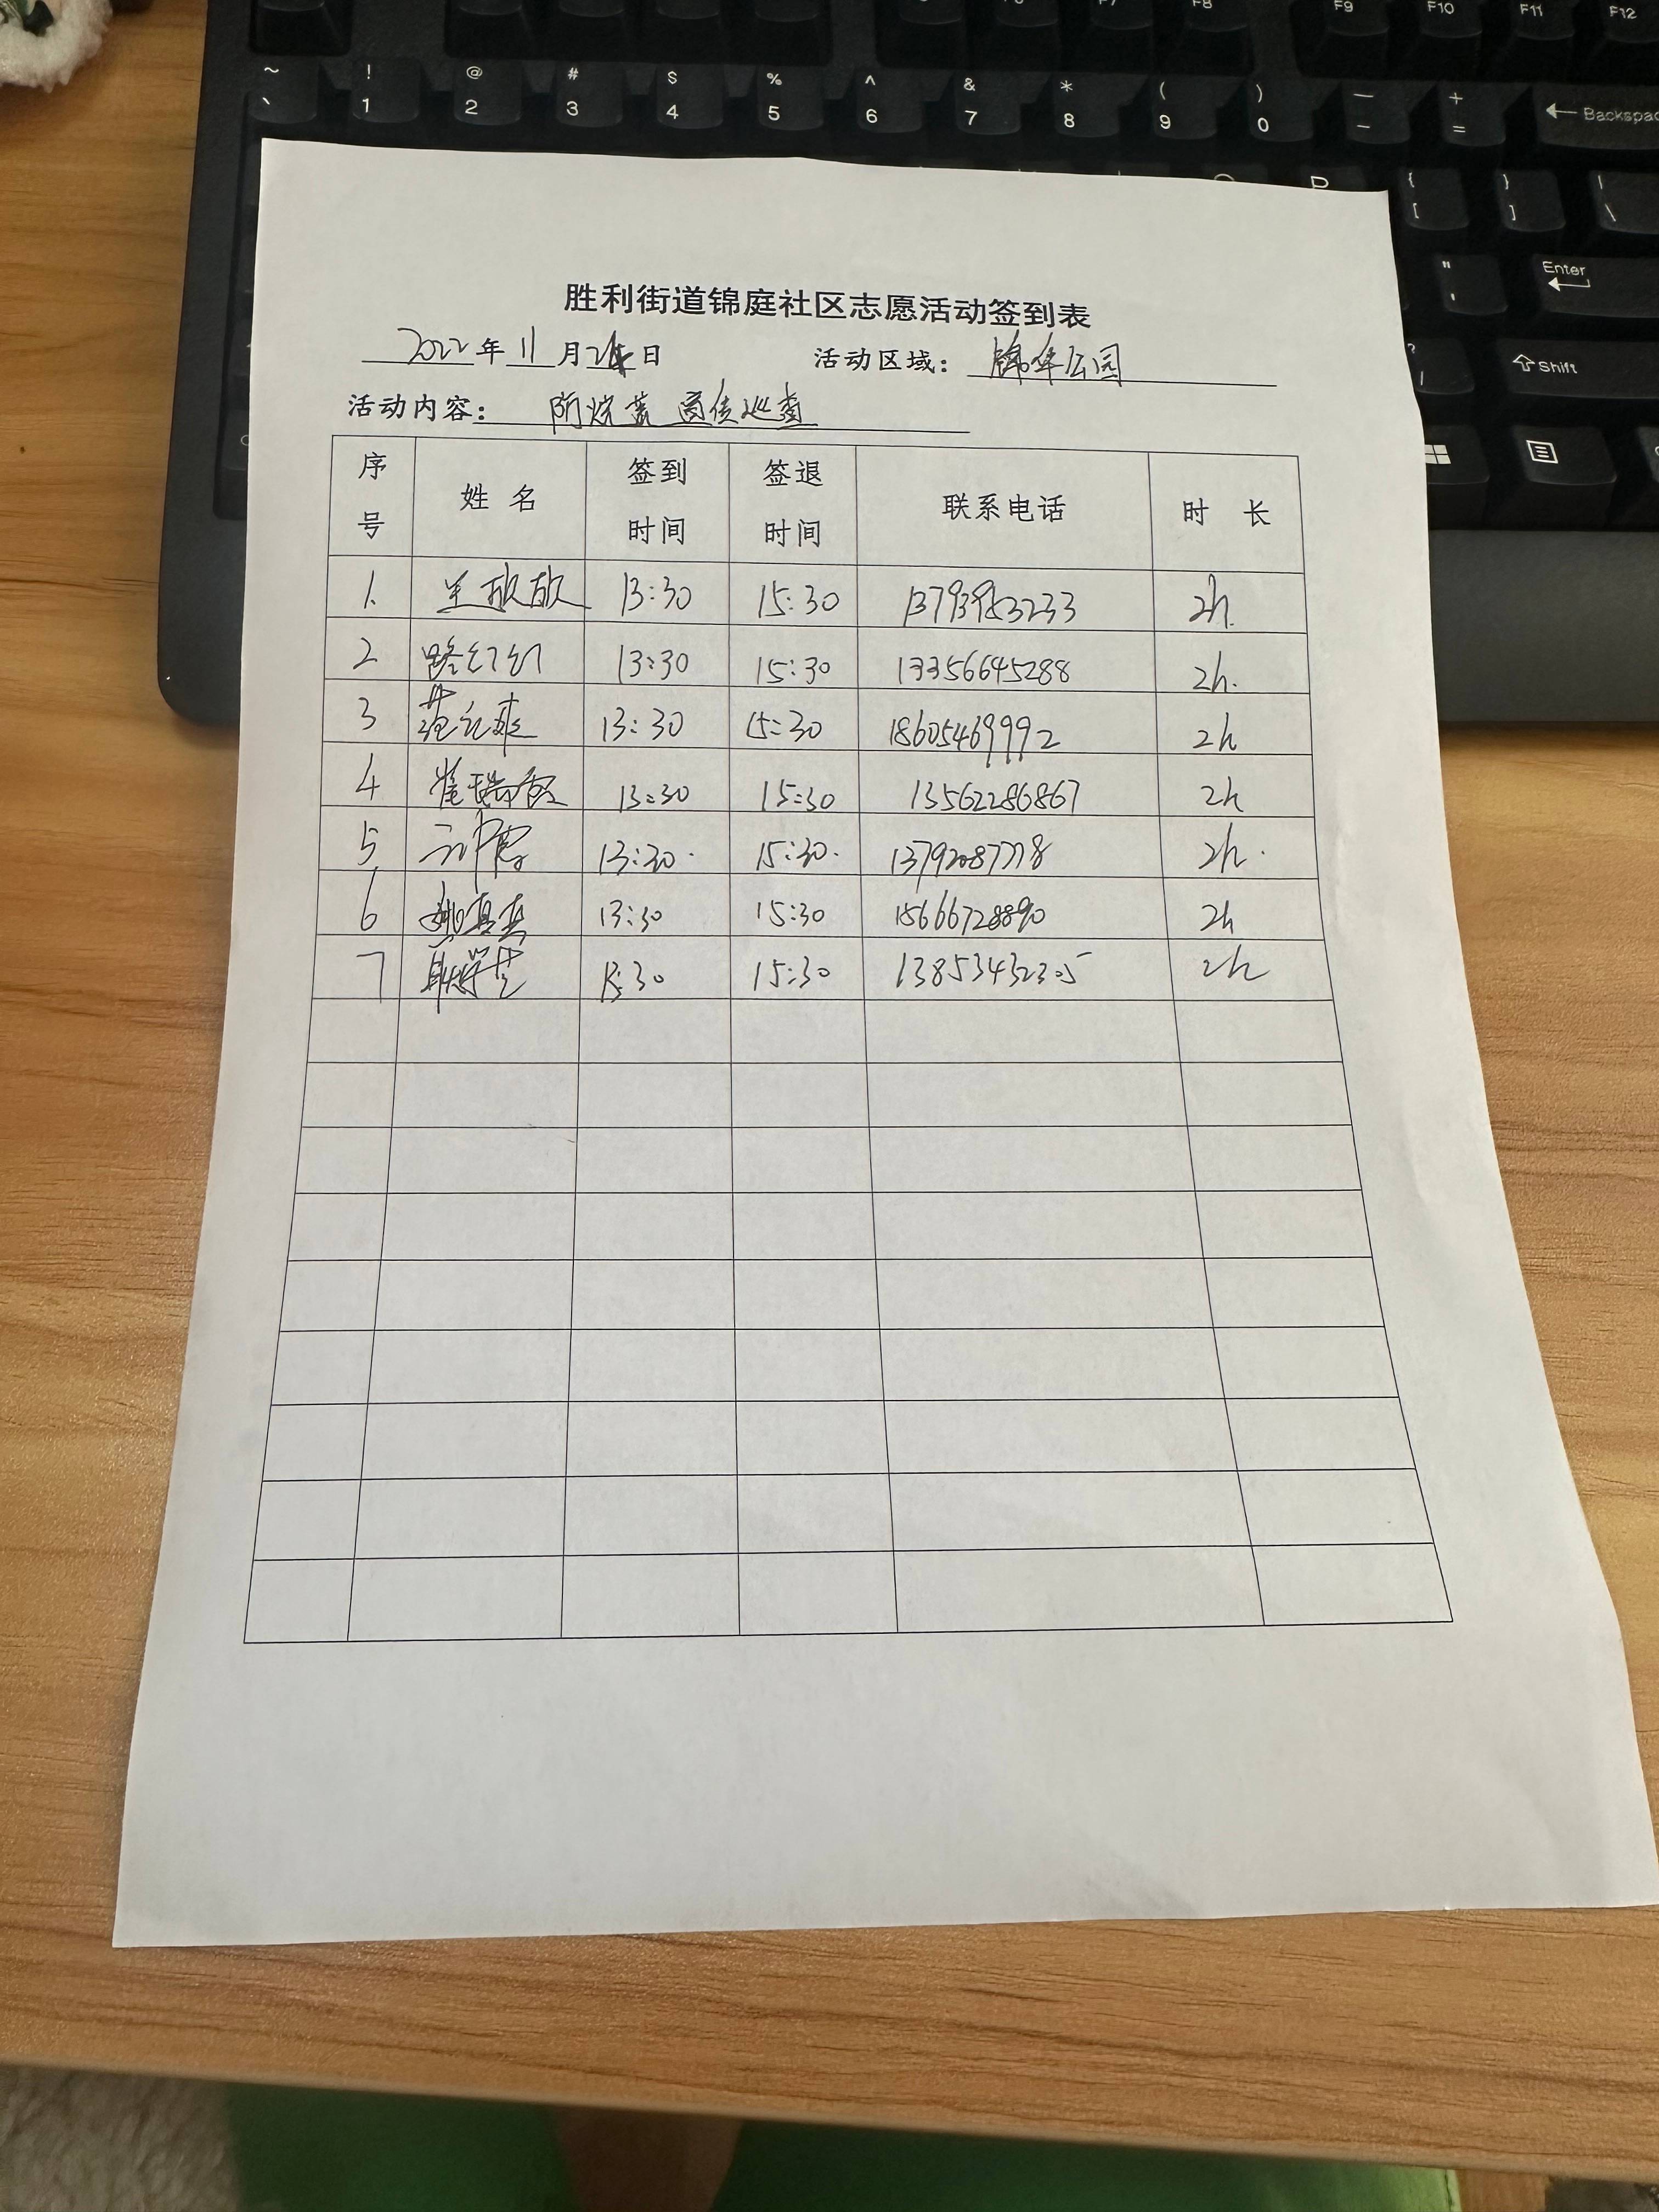 ~ ! @ # $ % ^ & * ( ) — +
` 1 2 3 4 5 6 7 8 9 0 - = ← Backspac
F8 F9 F10 F11 F12
P { [ } ] | \
" ' Enter
Shift
胜利街道锦庭社区志愿活动签到表
2022年11月24日 活动区域：锦华公园
活动内容：防烧荒 宣传巡查
序号 姓名 签到时间 签退时间 联系电话 时长
1. 13:30 15:30 2h.
2 路红红 13:30 15:30 13356645288 2h.
3 13:30 15:30 18605469992 2h
4 崔瑞霞 13:30 15:30 13562286867 2h
5 13:30. 15:30. 2h.
6 姚真真 13:30 15:30 15666728890 2h
7 耿学芝 13:30 15:30 13853432305 2h